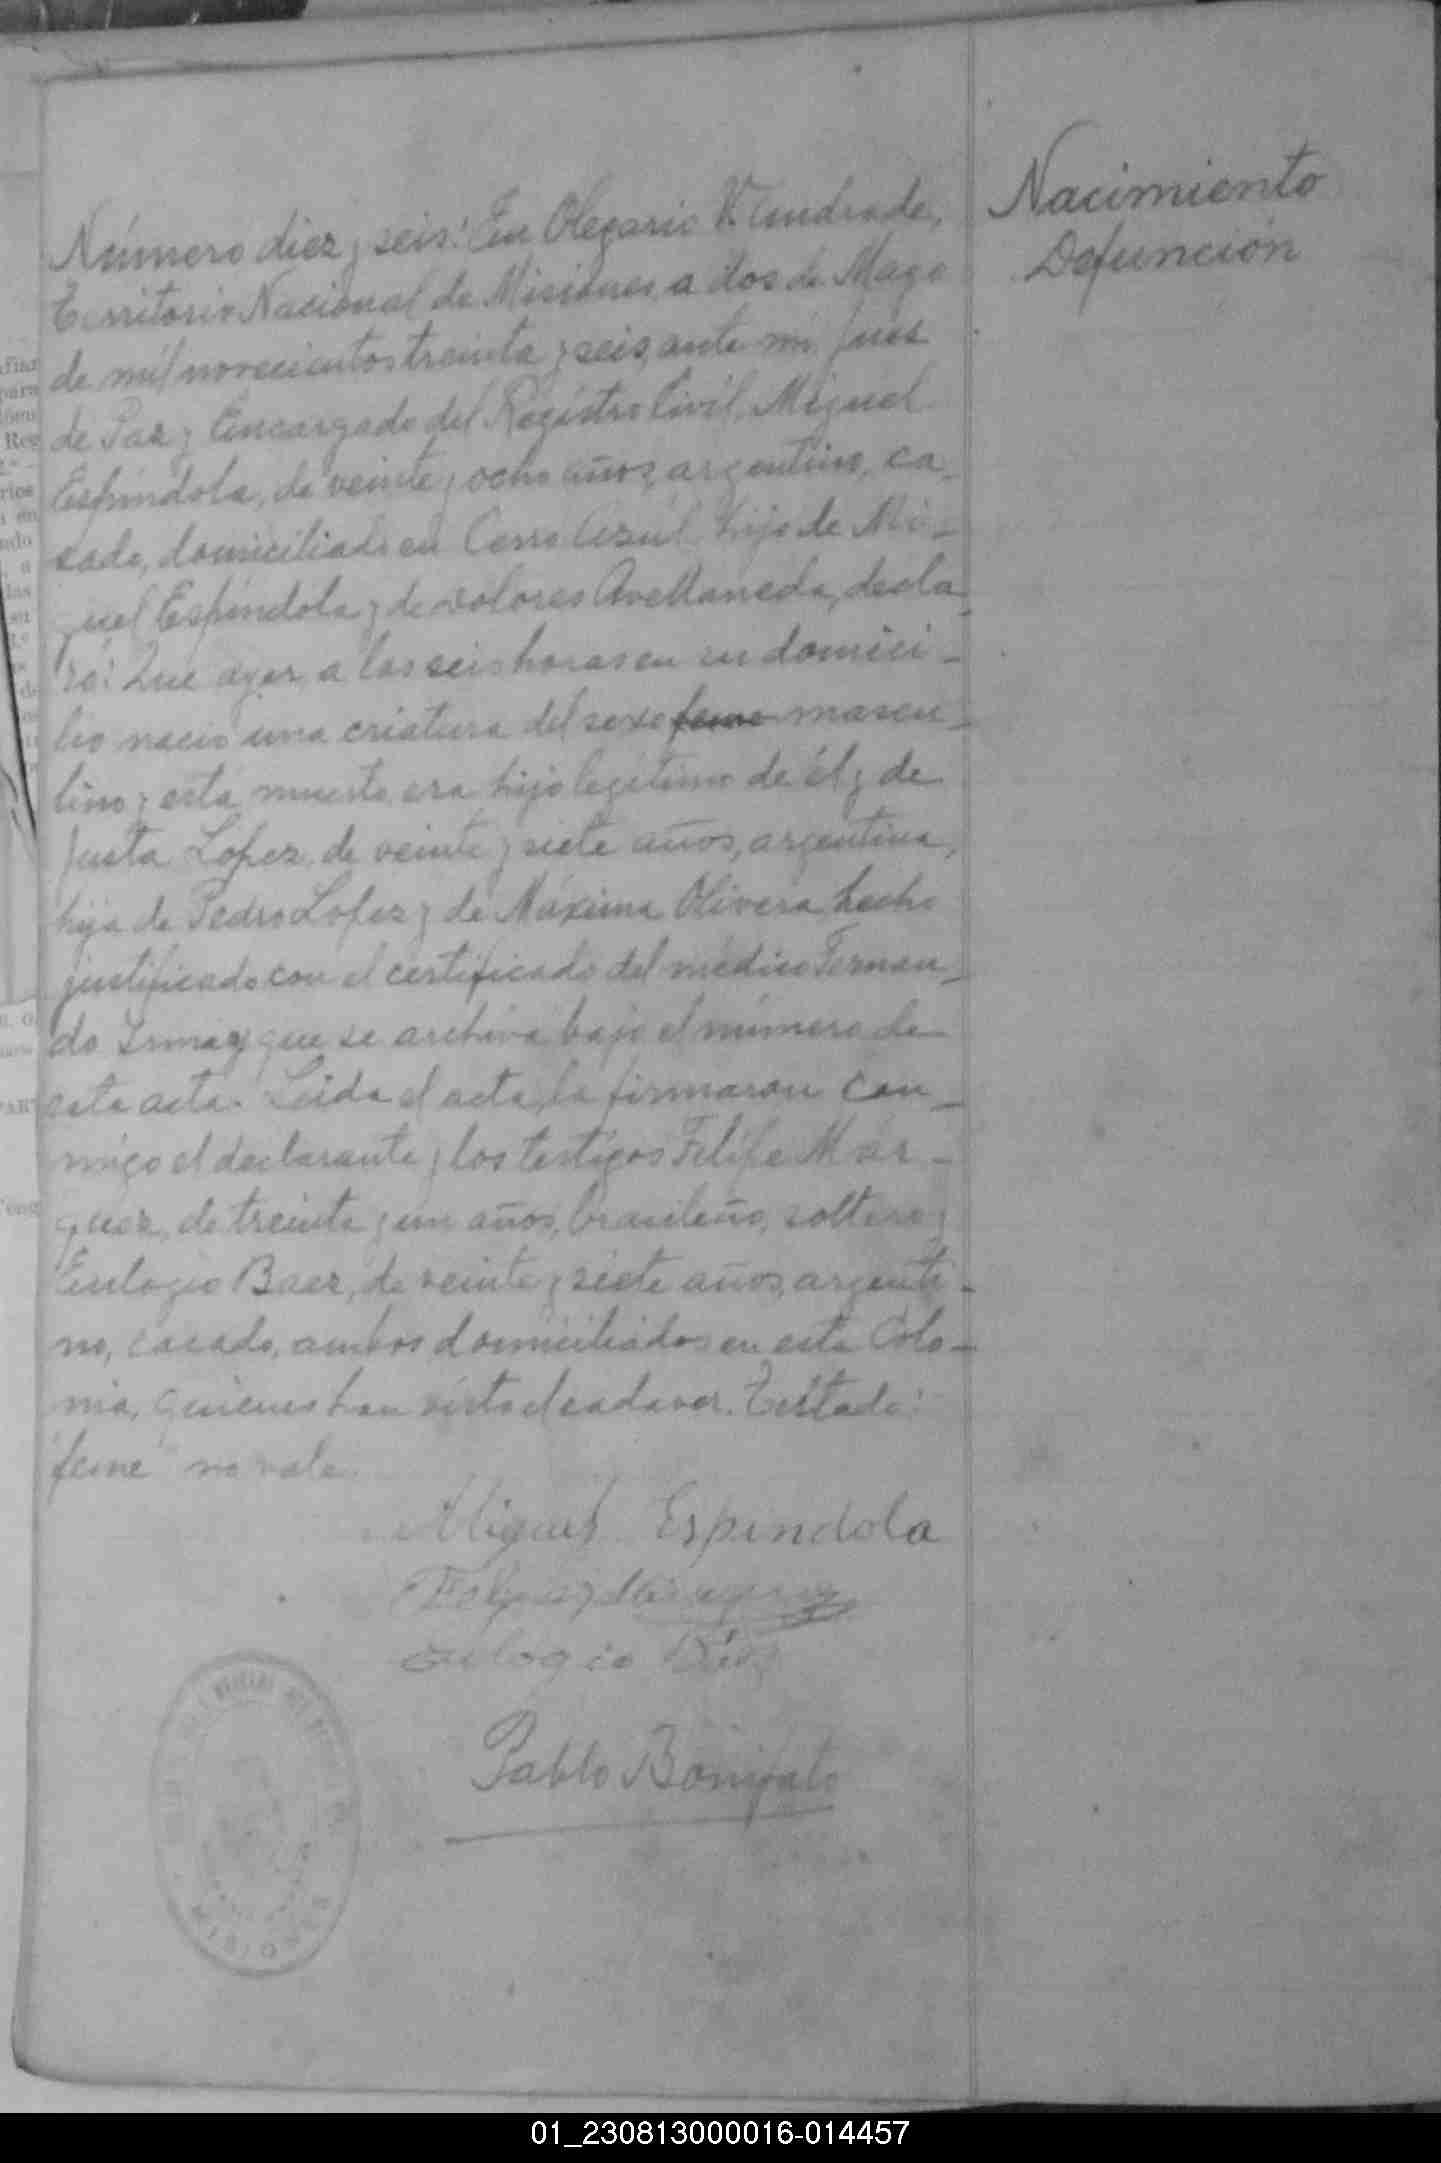 Nacimiento
Defunción
Número diez y seis: En Olegario V. Andrade,
Territorio Nacional de Misiones, a dos de Mayo
de mil novecientos treinta y seis, ante mi, Juez
de Paz y Encargado del Registro Civil, Miguel
Espindola, de veinte y ocho años, argentino, ca-
sado, domiciliado en Cerro Azul, hijo de Mi-
guel Espindola y de Dolores Avellaneda, decla
ró: Que ayer, a las seis horas en su domici-
lio nació una criatura del sexo feme mascu-
lino y está muerto, era hijo legitimo de él y de
Justa Lopez, de veinte y siete años, argentina,
hija de Pedro Lopez y de Máxima Olivera, hecho
justificado con el certificado del médico Fernan-
do que se archiva bajo el número de
esta acta. Leida el acta, la firmaron con-
migo el declarante y los testigos Felipe Már-
quez, de treinta y un años, brasileño, soltero y
Eulogio Baez, de veinte y siete años, argenti-
no, casado, ambos domiciliados en esta Colo-
nia, quienes han visto el cadaver. Testado:
"feme" no vale.
Miguel Espindola
Eulogio
Pablo
MISIONES
01_230813000016-014457